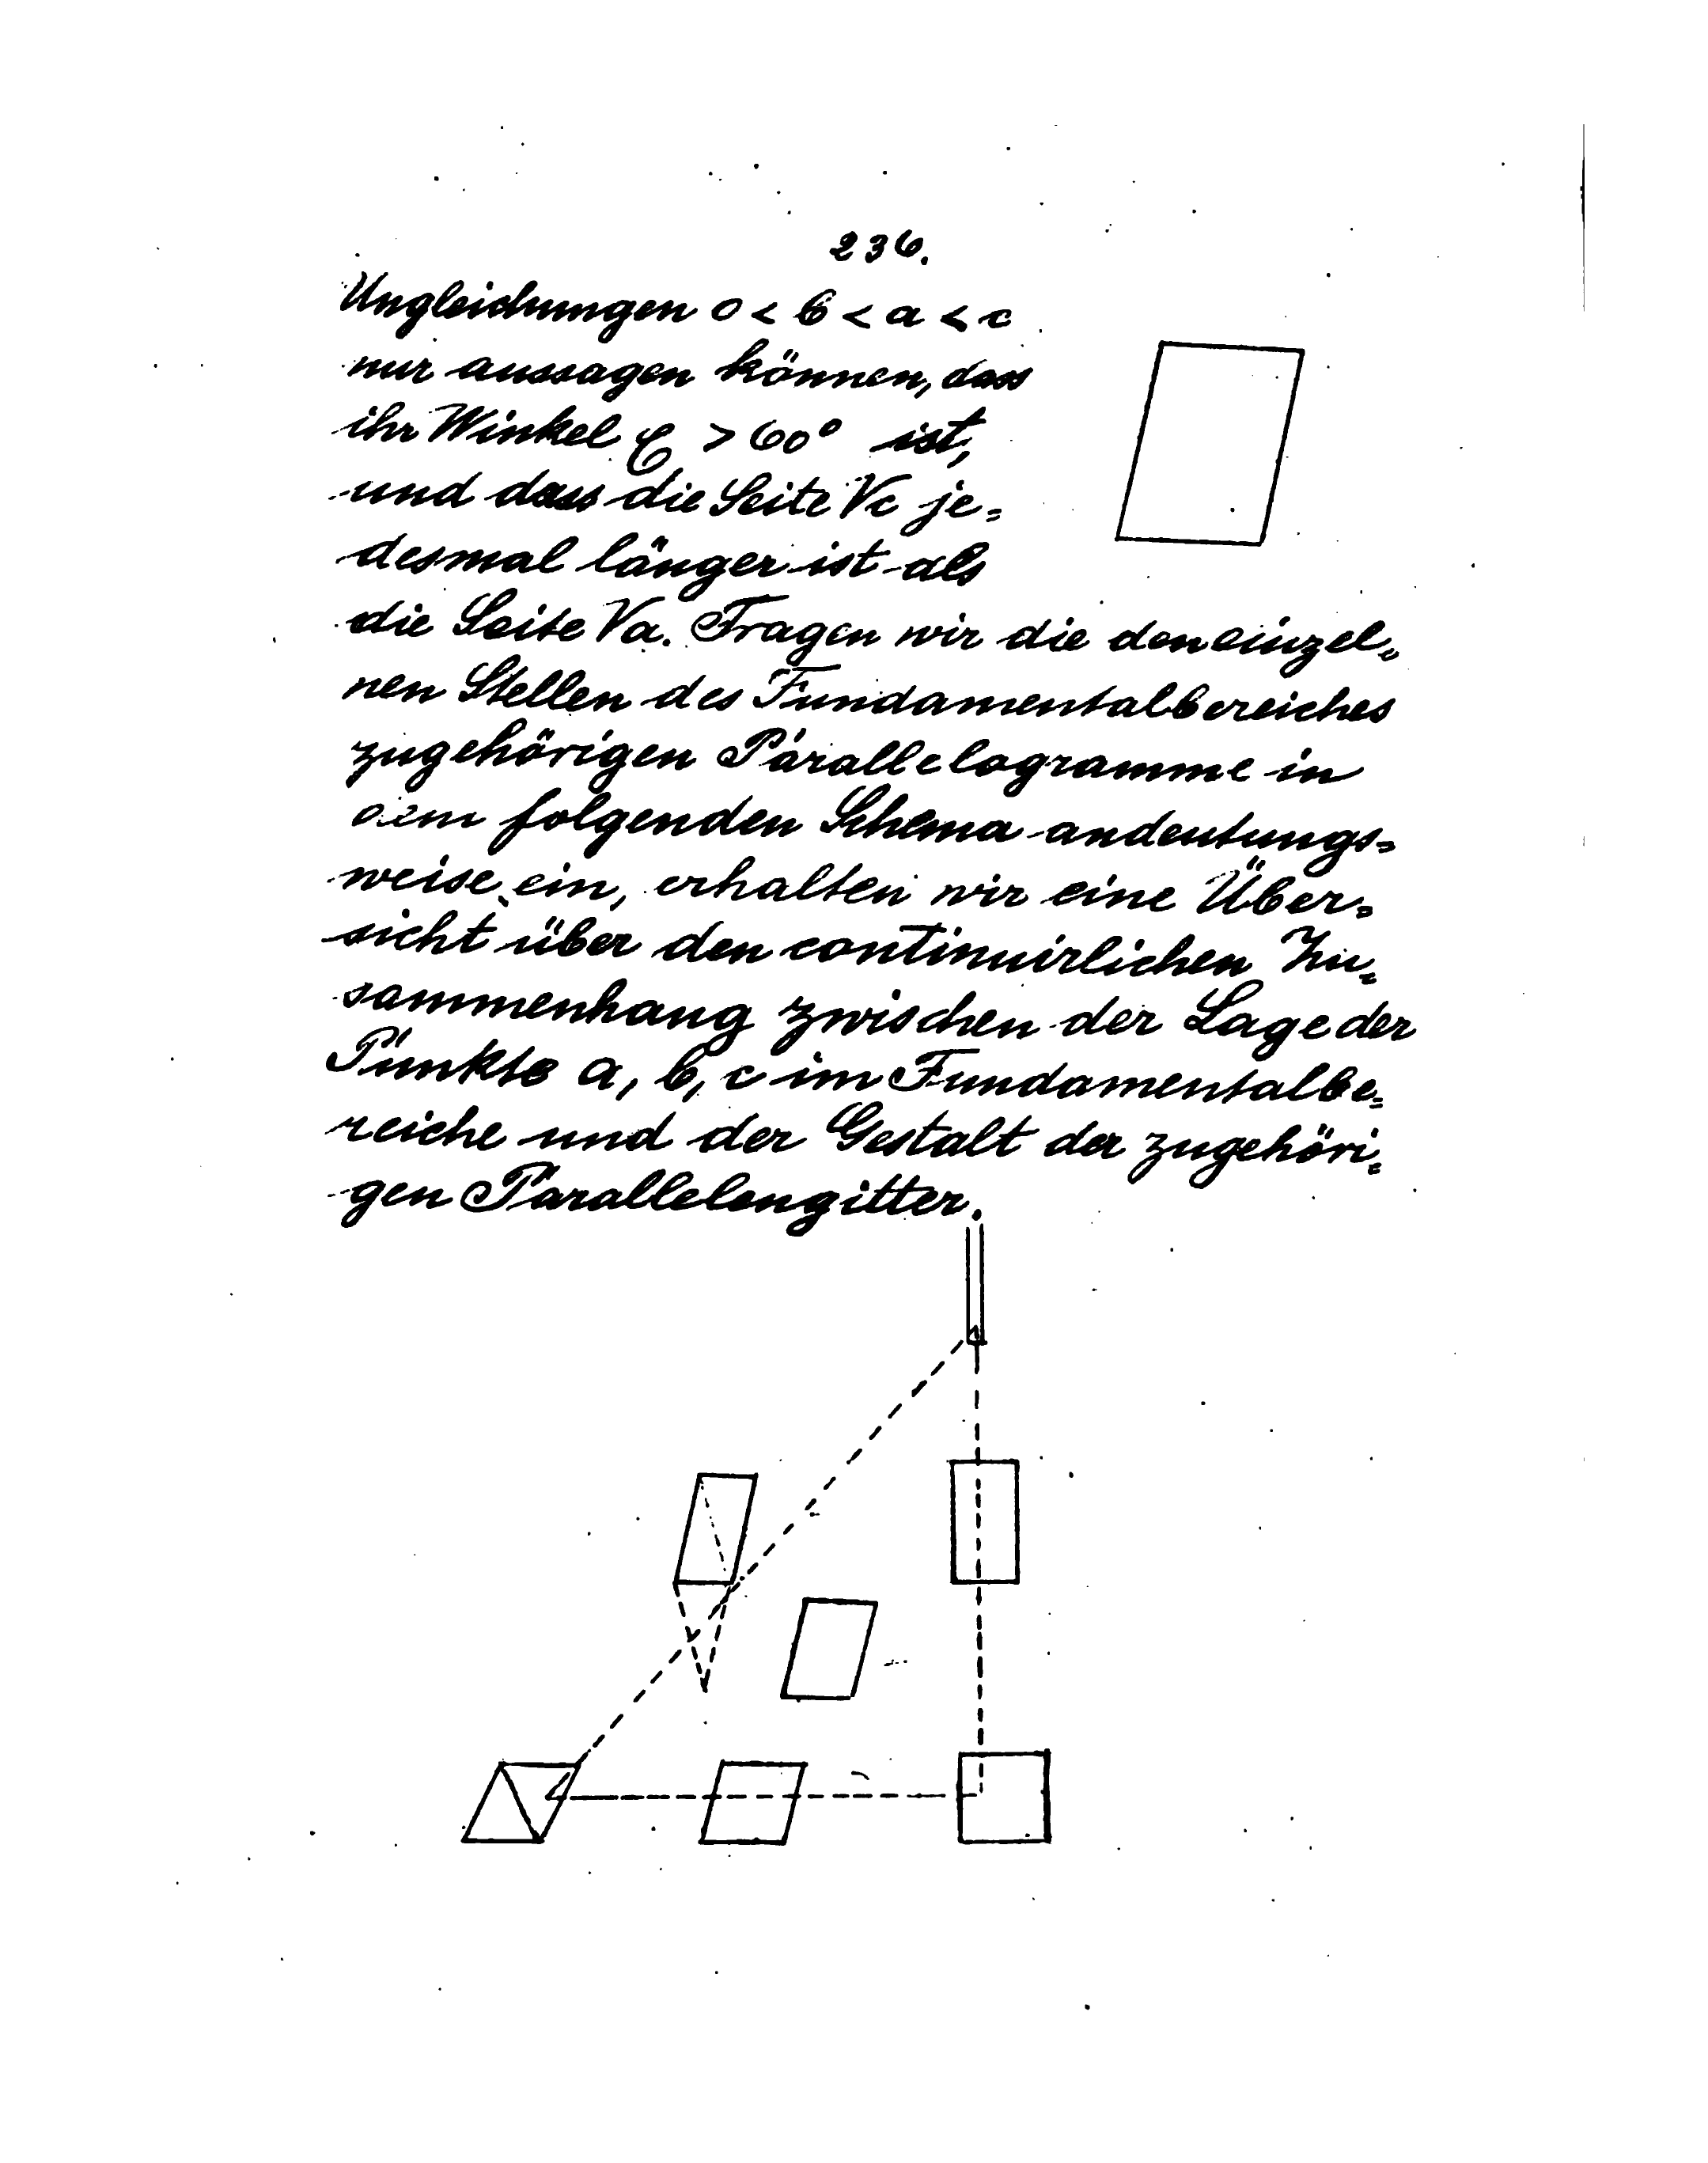 236.
Ungleichungen 0 < b < a < c
nur aussagen können, dass
ihr Winkel φ > 60° ist,
und dass die Seite √c je=
desmal länger ist als
die Seite √a. Fragen wir die den einzel=
nen Stellen des Fundamentalbereiches
zugehörigen Parallelogramme in
dem folgenden Schema andeutungs=
weise ein, erhalten wir eine Über=
sicht über den continuirlichen Zu=
sammenhang zwischen der Lage der
Punkte a, b, c im Fundamentalbe=
reiche und der Gestalt der zugehöri=
gen Parallelengitter.